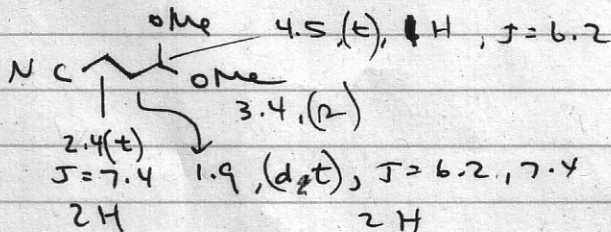 OMe 4.5, (t), 1H, J = 6.2
NC OMe
3.4, (s)
2.4 (t)
J = 7.4 1.9, (d,t), J = 6.2, 7.4
2H 2H